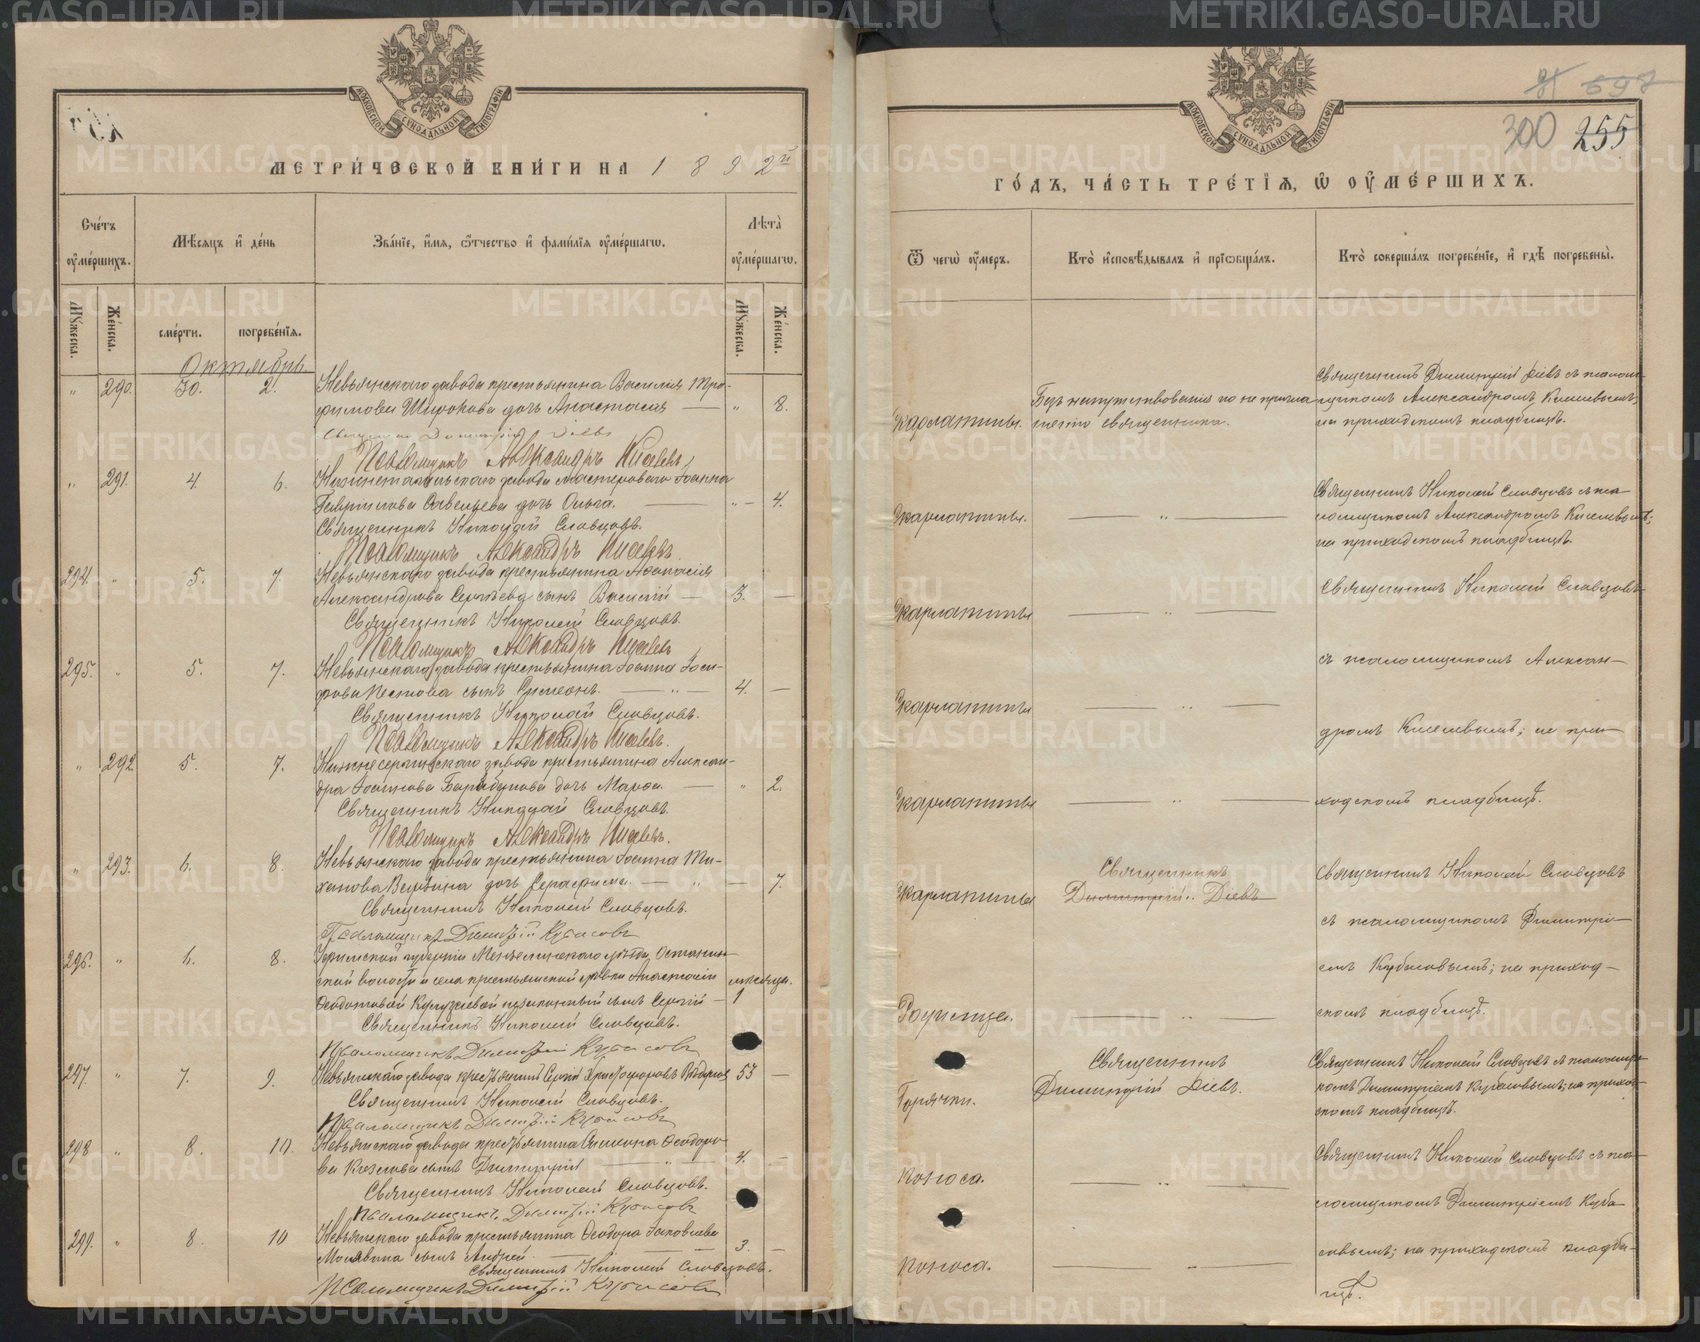 МЕТРИ́ЧЕСКОЙ КНИ́ГИ НА 1892й
Сче́тъ ᲂу҆ме́ршихъ.
Мѣ́сяцъ и҆ де́нь
Зва́нїе, и҆́мя, ѻ҆́тчество и҆ фами́лїя ᲂу҆ме́ршагѡ.
Лѣ́та ᲂу҆ме́ршагѡ.
Мꙋ́жеска.
Же́нска.
сме́рти.
погребе́нїя.
Мꙋ́жеска.
Же́нска.
Октябрь
" 290. 30. 2. Невьянскаго завода крестьянина Василія Тро-
фимова Широкова дочь Анастасія — " 8.
Священникъ Димитрій Діевъ
Псаломщикъ Александръ Киселевъ
" 291. 4. 6. Нижнетагильскаго завода мастероваго Іоанна
Гавриилова Савельева дочь Ольга. — " — 4.
Священникъ Николай Словцовъ.
Псаломщикъ Александръ Киселевъ.
294. " 5. 7. Невьянскаго завода крестьянина Аѳанасія
Александрова сынъ Василій — 3. —
Священникъ Николай Словцовъ
Псаломщикъ Александръ Киселевъ
295. " 5. 7. Невьянскаго завода крестьянина Іоанна Іоси-
фова сынъ Симеонъ. — " — 4. —
Священникъ Николай Словцовъ.
Псаломщикъ Александръ Киселевъ.
" 292 5. 7. Нижнесергинскаго завода крестьянина Алексан-
дра Іоаннова дочь Марѳа. — " 2.
Священникъ Николай Словцовъ.
Псаломщикъ Александръ Киселевъ.
" 293. 6. 8. Невьянскаго завода крестьянина Іоанна Ти-
хонова дочь Серафима. — " — 7.
Священникъ Николай Словцовъ.
Псаломщикъ Димитрій Кубасовъ
296. " 6. 8. губерніи Мензелинскаго уѣзда
волости и села крестьянской дѣвки Анастасіи мѣсяца.
незаконный сынъ Сергій — 1
Священникъ Николай Словцовъ.
Псаломщикъ Димитрій Кубасовъ
297. " 7. 9. Невьянскаго завода крестьянинъ Сергій Христофоровъ 53 —
Священникъ Николай Словцовъ.
Псаломщикъ Димитрій Кубасовъ
298 " 8. 10. Невьянскаго завода крестьянина Симеона Ѳеодоро-
ва Козлова сынъ Димитрій — 4. —
Священникъ Николай Словцовъ.
Псаломщикъ Димитрій Кубасовъ
299. " 8. 10 Невьянскаго завода крестьянина Ѳеодора Іаковлева
сынъ Андрей. — 3. —
Священникъ Николай Словцовъ.
Псаломщикъ Димитрій Кубасовъ
697
300 255
ГО́ДЪ, ЧА́СТЬ ТРЕ́ТЇЯ, Ѽ ОУ҆МЕ́РШИХЪ.
Ѿ чегѡ̀ ᲂу҆́меръ.
Кто̀ и҆сповѣ́дывалъ и҆ прїѡбща́лъ.
Кто̀ соверша́лъ погребе́нїе, и҆ гдѣ̀ погребены̀.
Скарлатины.
Безъ напутствованія по не пригла-
шенію священника.
Священникъ Димитрій Діевъ съ псалом-
щикомъ Александромъ Киселевымъ,
на приходскомъ кладбищѣ.
Скарлатины.
— " —
Священникъ Николай Словцовъ съ пса-
ломщикомъ Александромъ Киселевымъ;
на приходскомъ кладбищѣ.
Скарлатины
— " —
Священникъ Николай Словцовъ
Скарлатины
— " —
съ псаломщикомъ Алексан-
дромъ Киселевымъ; на при-
Скарлатины
— " —
ходскомъ кладбищѣ.
Скарлатины
Священникъ
Димитрій Діевъ
Священникъ Николай Словцовъ
съ псаломщикомъ Димитрі-
емъ Кубасовымъ; на приход-
скомъ кладбищѣ.
Родимца.
— " —
Горячки.
Священникъ
Димитрій Діевъ.
Священникъ Николай Словцовъ съ псаломщи-
комъ Димитріемъ Кубасовымъ; на приход-
скомъ кладбищѣ.
Поноса.
— " —
Священникъ Николай Словцовъ съ пса-
ломщикомъ Димитріемъ Куба-
совымъ; на приходскомъ кладби-
щѣ.
Поноса.
— " —